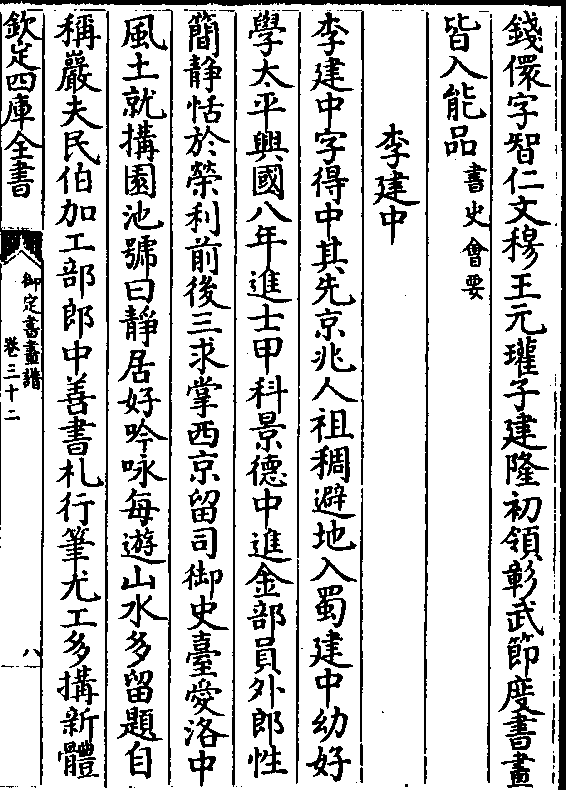 錢儇字智仁文穆王元瓘子建隆初領彰武節度書畫
皆入能品書史會要
李建中
李建中字得中其先京兆人祖稠避地入蜀建中幼好
學太平興國八年進士甲科景德中進金部員外郎性
簡静恬於榮利前後三求掌西京留司御史臺愛洛中
風土就搆園池號曰靜居好吟咏每遊山水多留題自
稱巖夫民伯加工部郎中善書札行筆尤工多搆新體
欽定四庫全書
御定書畫譜
卷三十二
八